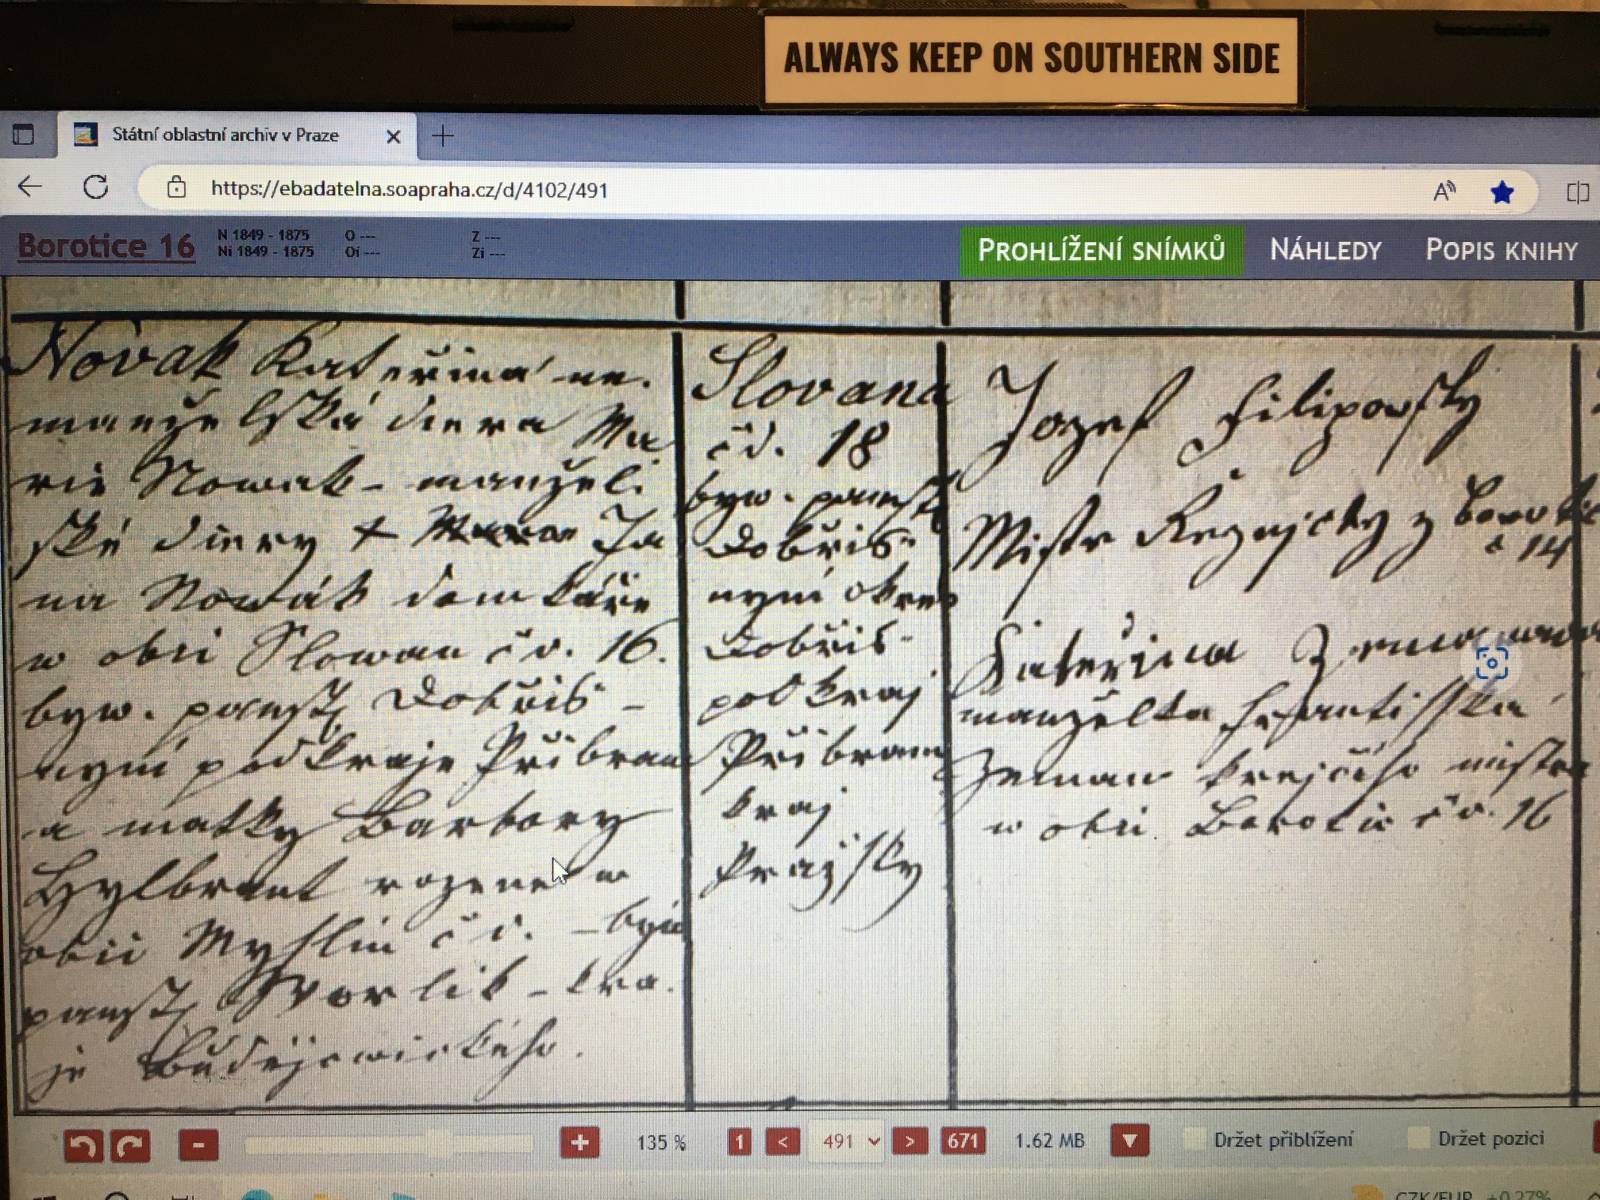 ALWAYS KEEP ON SOUTHERN SIDE
Státní oblastní archiv v Praze
https://ebadatelna.soapraha.cz/d/4102/491
Borotice 16
N 1849 - 1875 O --- Z ---
Ni 1849 - 1875 Oi --- Zi ---
PROHLÍŽENÍ SNÍMKŮ NÁHLEDY POPIS KNIHY
Novak Kateřina ne-
manželská dcera Ma
rie Nowak - manžel
ské dcery + Ja
na Nowák domkáře
w obci Slowan čd. 16.
byw. panst Dobříš -
nyní podkraje Příbram
a matky Barbory
Hylbrant rozené w
obci Myslin čd. -
panst Worlik - kra
je Budějowického.
Slovana
čd. 18
byw. panst
Dobříš
nyní okres
Dobříš
pod kraj
Příbram
kraj
Pražsky
Jozef Filipowsky
Mistr Řeznicky z Borotic
č 14
Kateřina
manželka Františka
Zeman krejčího mistra
w obci Borotic čd. 16
135 % 1 < 491 > 671 1.62 MB Držet přiblížení Držet pozici
CZK/EUR +0,27%